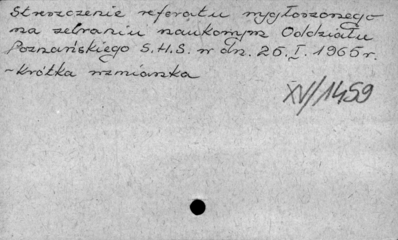 Streszczenie referatu wygłoszonego
na zebraniu naukowym Oddziału
Poznańskiego S.H.S. w dn. 26.I.1965 r.
- Krótka wzmianka
XV/1459